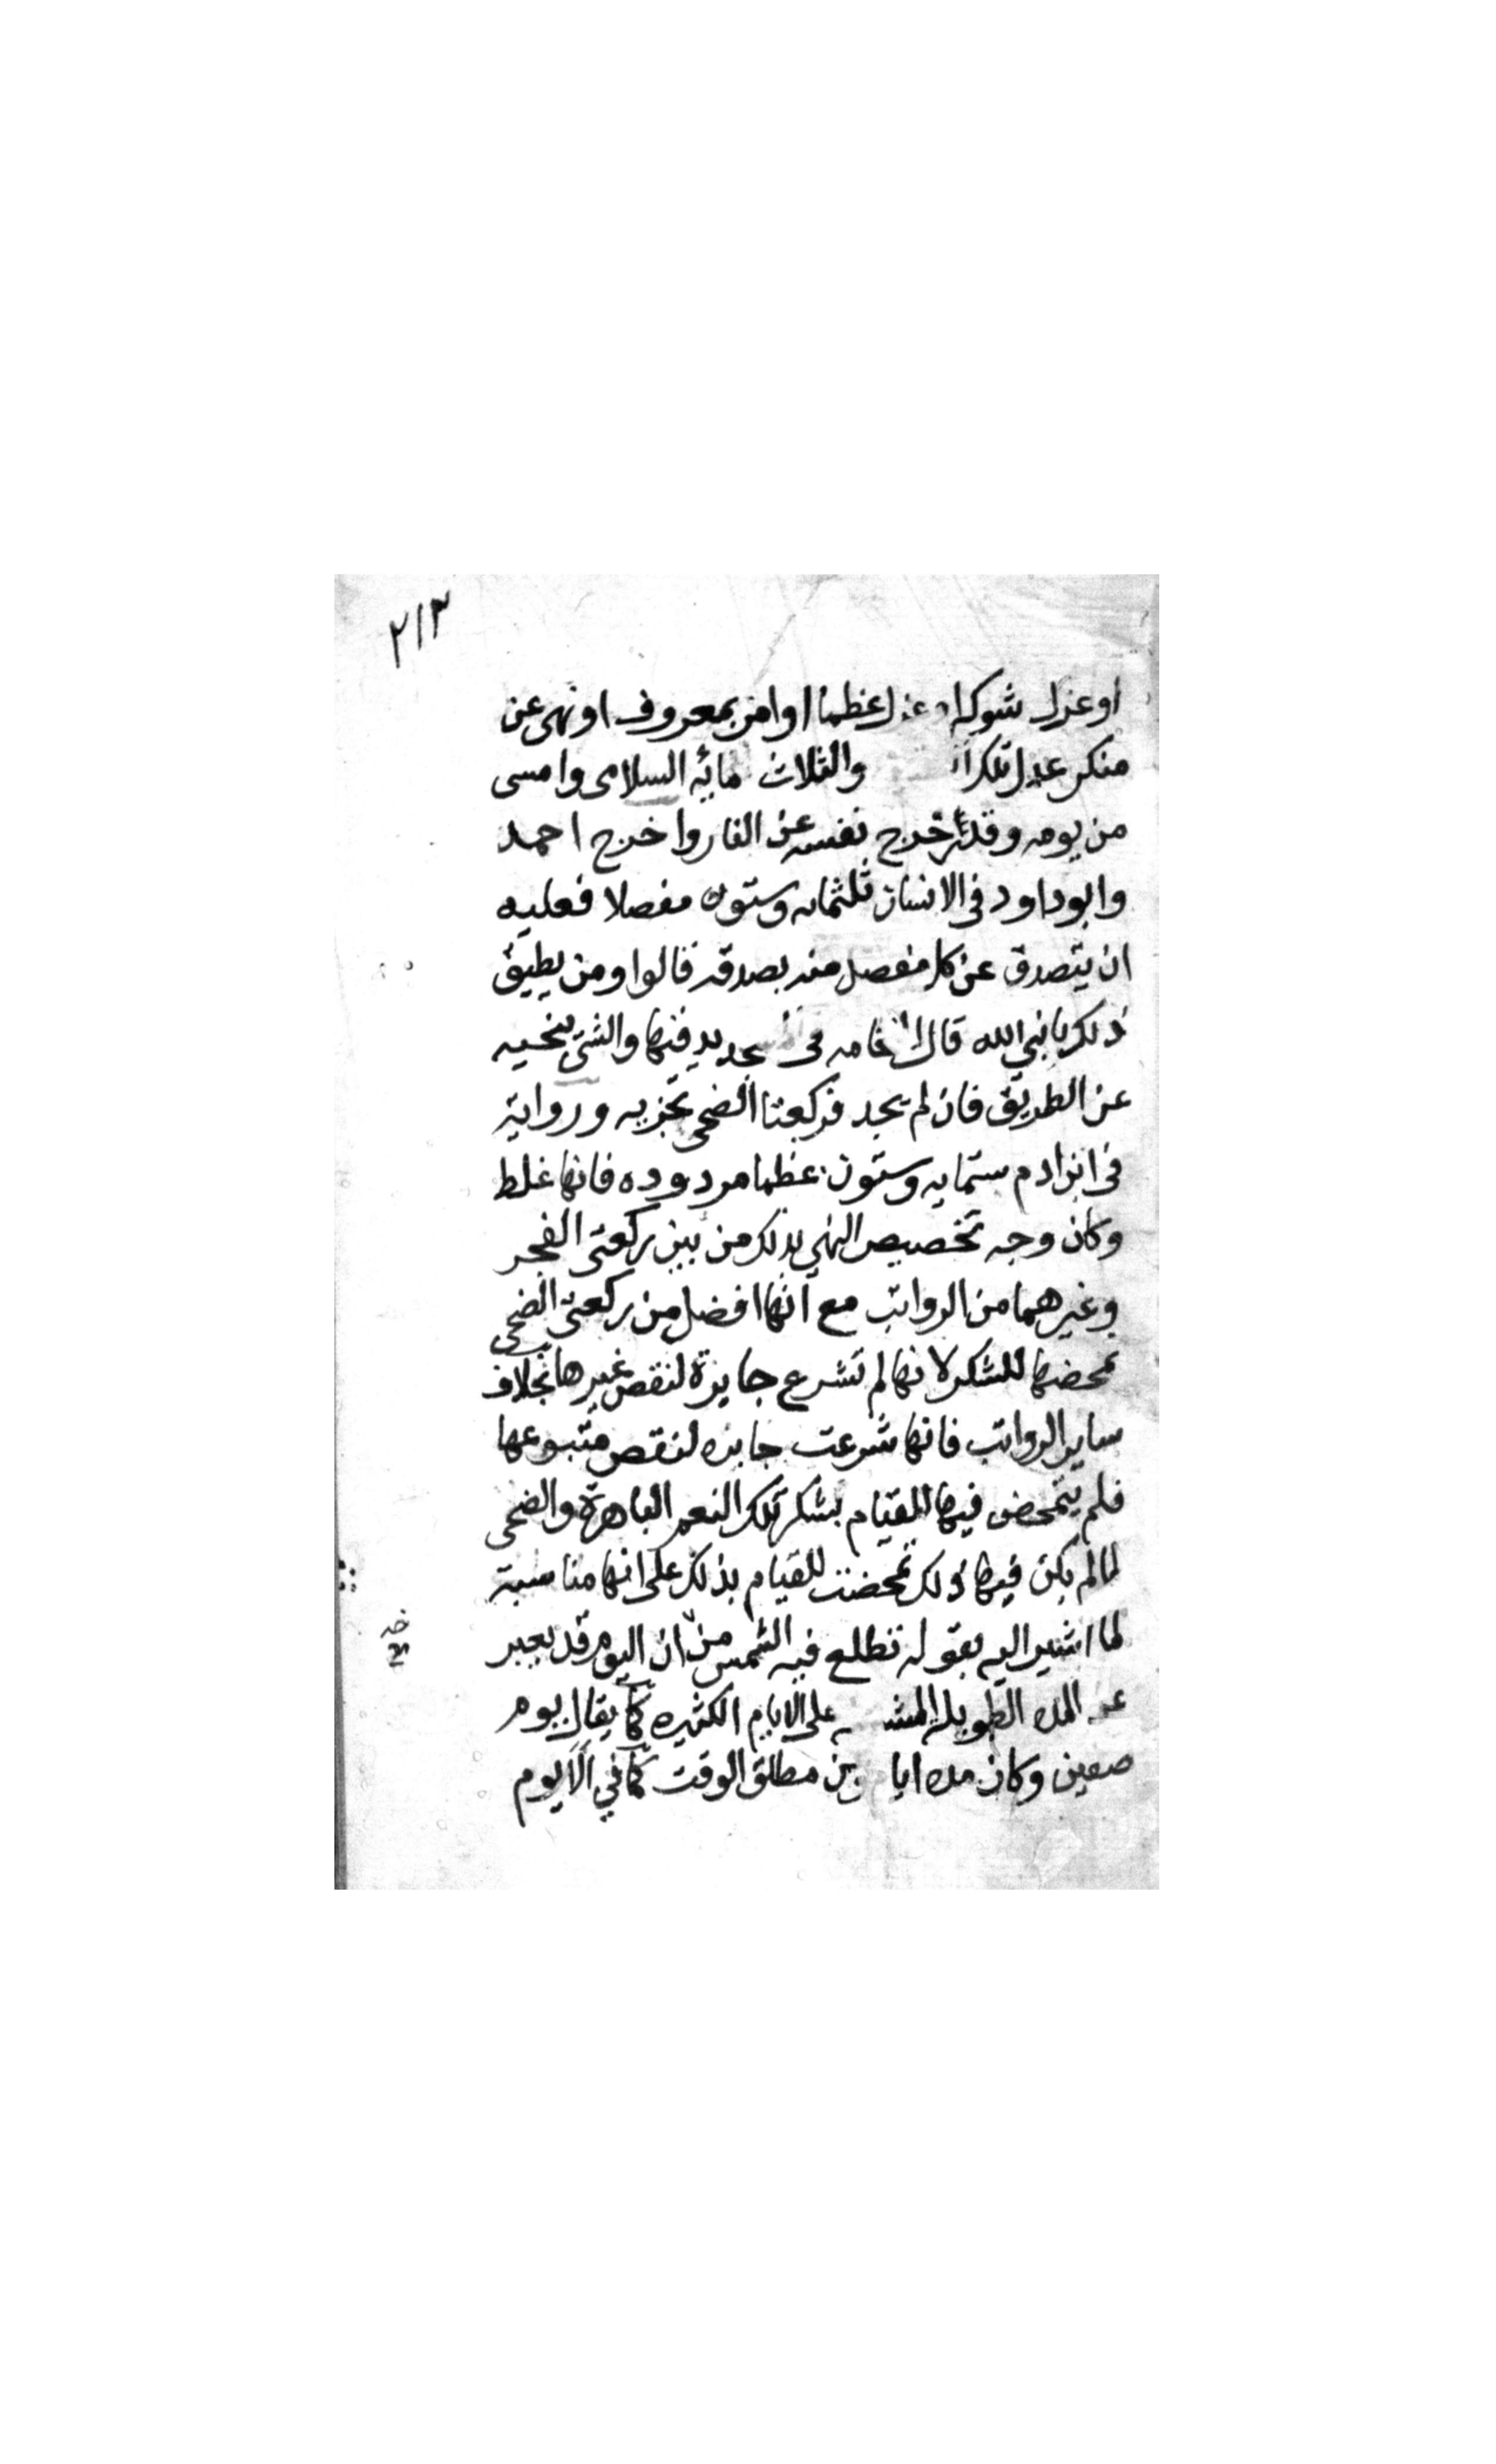 ٢١٣
او عزل شوكه او عزل عظما او امر بمعروف او نهى عن
منكر عدل تلك والثلاث مائه السلامى وامسى
من يومه وقد زحزح نفسه عن النار واخرج احمد
وابو داود فى الانسان ثلثمايه وستون مفصلا فعليه
ان يتصدق عن كل مفصل منه بصدقه قالوا ومن يطيق
ذلك يا نبي الله قال النخامه فى المسجد يدفنها والشئ ينحيه
عن الطريق فان لم تجد فركعتا الضحى تجزيه ورواية
فى ابن ادم ستمايه وستون عظما مردوده فانها غلط
وكان وجه تخصيص النهي بذلك من بين ركعتى الفجر
وغيرهما من الرواتب مع انها افضل من ركعتى الضحى
تمحضها للشكر لانها لم تشرع جابرة لنقص غيرها بخلاف
ساير الرواتب فانها شرعت جابره لنقص متبوعها
فلم يتمحض فيها القيام بشكر تلك النعم الباهرة والضحى
لما لم يكن فيها ذلك تمحضت للقيام بذلك على انها مناسبة
لما اشير اليه بقوله تطلع فيه الشمس من ان اليوم قد يعبر
عن المده الطويله على الايام الكثيره كما يقال يوم
صفين وكان مده ايام مطلق الوقت كما في الا يوم